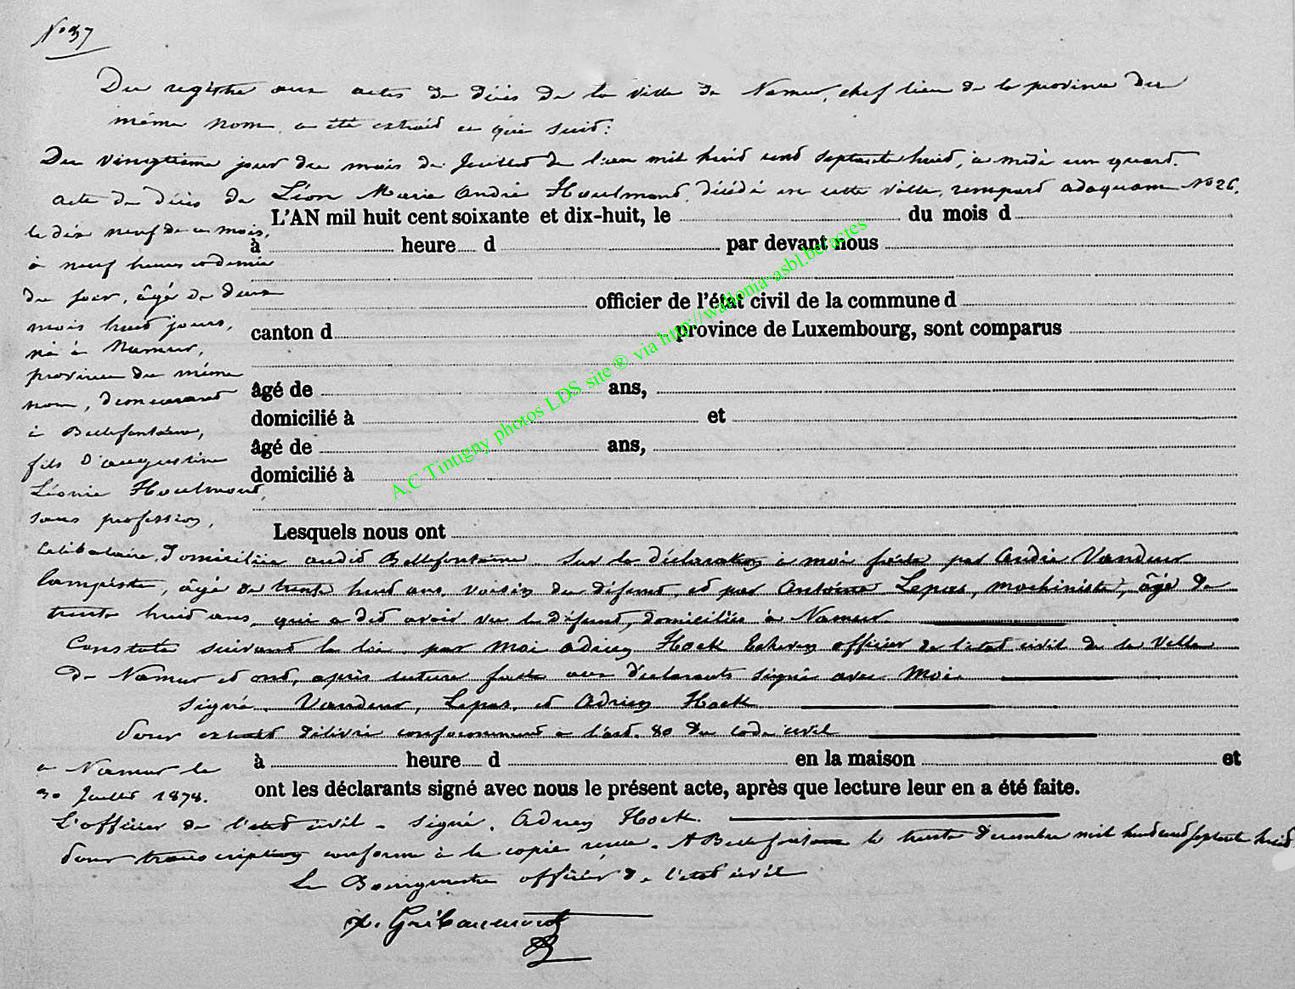 N° 37
Du registre aux actes de décès de la ville de Namur, chef lieu de la province du
même nom, a été extraid ce qui suit:
Du vingtième jour du mois de Juillet de l'an mil huid cent septante huid, à midi un quart.
acte de décès de Léon Marie André Houlmond, décédé en cette ville, rempard adaquam N° 26,
L'AN mil huit cent soixante et dix-huit, le du mois d
le dix neuf de ce mois,
à heure d par devant nous
à neuf heures et demie
du soir, âgé de deux
officier de l'état civil de la commune d
mois huid jours,
canton d province de Luxembourg, sont comparus
né à Namur,
province du même
âgé de ans,
nom, demeurant
domicilié à et
à Bellefontaine,
âgé de ans,
fils d'augustine
domicilié à
Léonie Houlmond,
sans profession,
Lesquels nous ont
Célibataire, domiciliée audid Bellefontaine. Sur la déclaration à moi faite par André Vandeur
lampiste, âgé de trente huid ans, voisin du défund, et par Antoine Lepas, machiniste, âgé de
trente huid ans, qui a did avoir vu le défund, domiciliés à Namur.
Constaté suivand la loi, par moi adrien Hock Echevin officier de l'état civil de la Ville
De Namur et ond, après lecture faite aux déclarants signé avec Moi.
signé. Vandeur, Lepas, et Adrien Hock
Pour extrait délivré conformément à l'art. 80 du code civil
à heure d en la maison et
à Namur le
30 Juillet 1878.
ont les déclarants signé avec nous le présent acte, après que lecture leur en a été faite.
L'officier de l'état civil - signé, Adrien Hock.
Pour transcription conforme à la copie reçue. A Bellefontaine le trente Décembre mil huid cend septante huid
Le Bourgmestre officier de l'état civil
A.C Tintigny photos LDS site ® via http://wallonia-asbl.be/actes